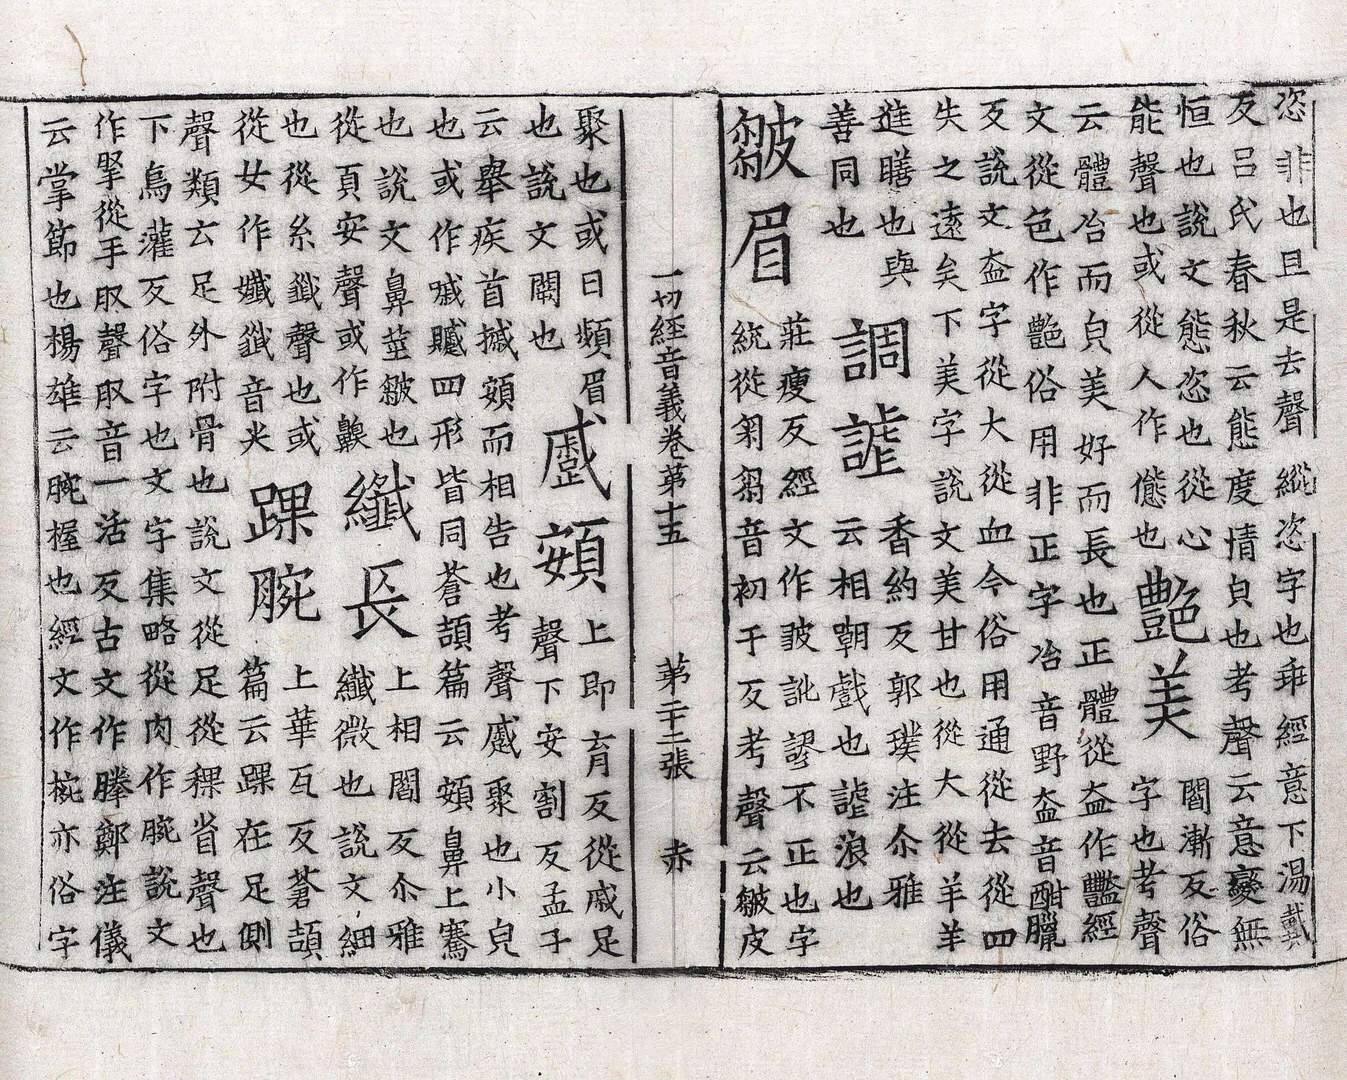 恣非也且是去聲縱恣字也乖經意下湯戴
反呂氏春秋云態度情皃也考聲云意變無
恒也說文態恣也從心
能聲也或從人作儓也
艶美
閻漸反俗
字也考聲
云體冶而皃美好而長也正體從盍作豔經
文從色作艶俗用非正字冶音野盍音酣臘
反說文盍字從大從血今俗用通從去從四
失之遠矣下美字說文美甘也從大從羊羊
進膳也與
善同也
調謔
香約反郭璞注尒雅
云相嘲戲也謔浪也
皺眉
莊瘦反經文作詖訛謬不正也字
統從芻芻音初于反考聲云皺皮
一切經音義卷第十五
第二十二張
赤
聚也或曰頻眉
也說文闕也
蹙頞
上即育反從戚足
聲下安割反孟子
云舉疾首撼頞而相告也考聲蹙聚也小皃
也或作喊䠞四形皆同蒼頡篇云頞鼻上騫
也說文鼻莖皺也
從頁安聲或作齃
纖長
上相閻反尒雅
纖微也說文細
也從糸韱聲也或
從女作孅韱音尖
踝腕
上華瓦反蒼頡
篇云踝在足側
聲類云足外附骨也說文從足從稞省聲也
下烏灌反俗字也文字集略從肉作腕說文
作掔從手臤聲臤音一活反古文作㨜鄭注儀
云掌節也楊雄云腕握也經文作椀亦俗字